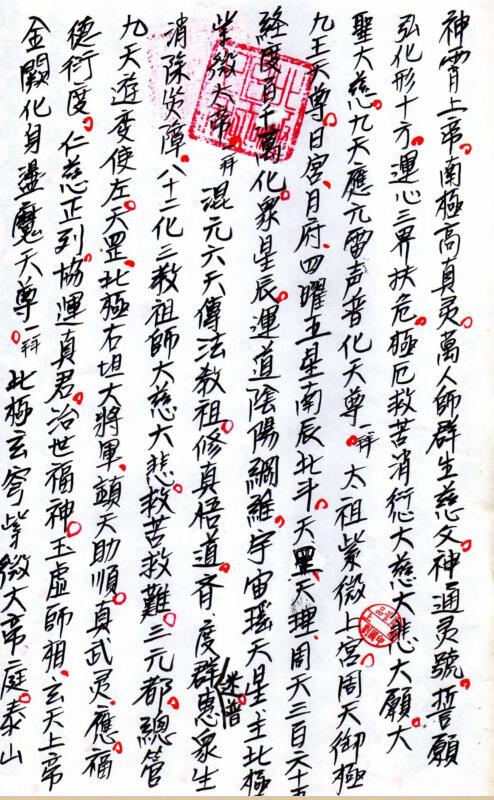 神霄上帝南極高真灵萬人師群生慈父神通灵號誓願
弘化形十方運心三界扶危極厄救苦消愆大慈大悲大願大
聖大慈九天應元雷声普化天尊一拜太祖紫微上宮周天御極
九王天尊日宮月府四曜五星南辰北斗天罡天理周天三百六十五
経度百千萬化衆星辰運道陰陽綱維宇宙瑶天星主北極
紫微大帝一拜混元六天傳法教祖修真悟道斉度群迷普惠衆生
消除災障八十二化三教祖師大慈大悲救苦救難三元都總管
九天遊変使左天罡北極右垣大将軍顕天助順真武灵應福
德衍度仁慈正列協運真君治世福神玉虛師相玄天上帝
金闕化身盪魔天尊一拜北極玄穹紫微大帝庭泰山